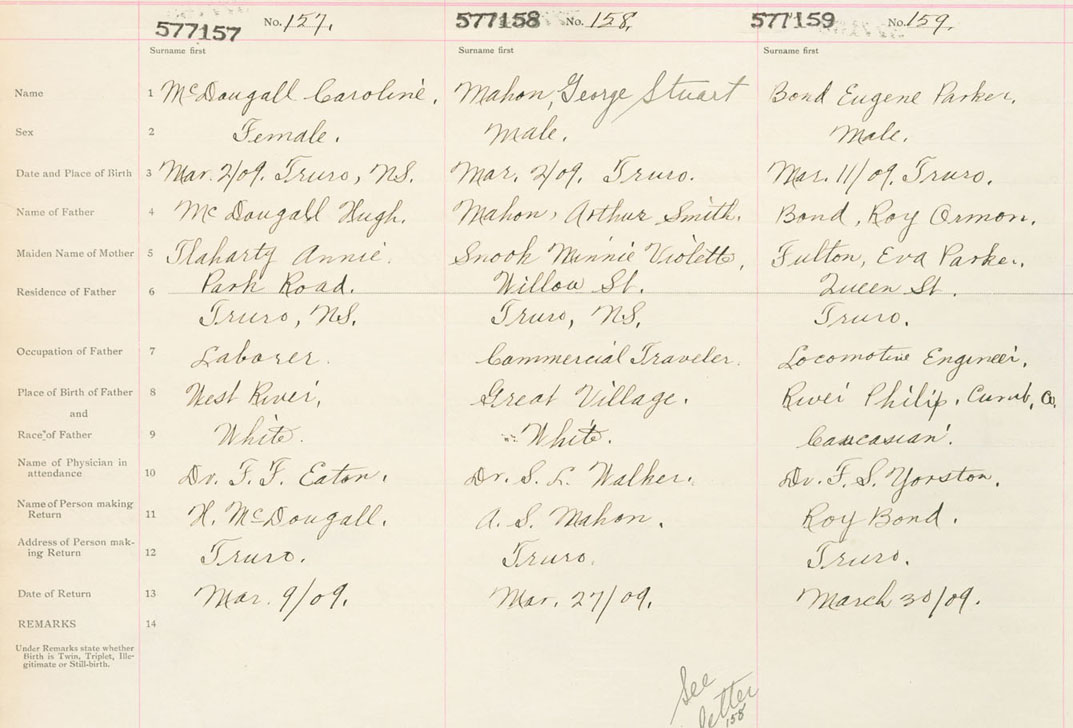 577157 No. 157. 577158 No. 158. 577159 No. 159.
Surname first Surname first Surname first
Name 1 McDougall Caroline. Mahon, George Stuart Bond Eugene Parker.
Sex 2 Female. Male. Male.
Date and Place of Birth 3 Mar. 2/09. Truro, NS. Mar. 2/09. Truro. Mar. 11/09. Truro.
Name of Father 4 McDougall Hugh. Mahon, Arthur Smith. Bond, Roy Ormon.
Maiden Name of Mother 5 Flaharty Annie. Snook Minnie Violette, Fulton, Eva Parker.
Park Road. Willow St. Queen St.
Residence of Father 6
Truro, NS. Truro, NS. Truro.
Occupation of Father 7 Laborer. Commercial Traveler. Locomotive Engineer.
Place of Birth of Father 8 West River, Great Village. River Philip, Cumb, Co.
and
Race of Father 9 White. White. Caucasian.
Name of Physician in
attendance 10 Dr. F. F. Eaton. Dr. S. L. Walker. Dr. F. S. Yorston.
Name of Person making
Return 11 H. McDougall. A. S. Mahon. Roy Bond.
Address of Person mak-
ing Return 12 Truro. Truro. Truro.
Date of Return 13 Mar. 9/09. Mar. 27/09. March 30/09.
REMARKS 14
Under Remarks state whether
Birth is Twin, Triplet, Ille-
gitimate or Still-birth.
See
letter
158